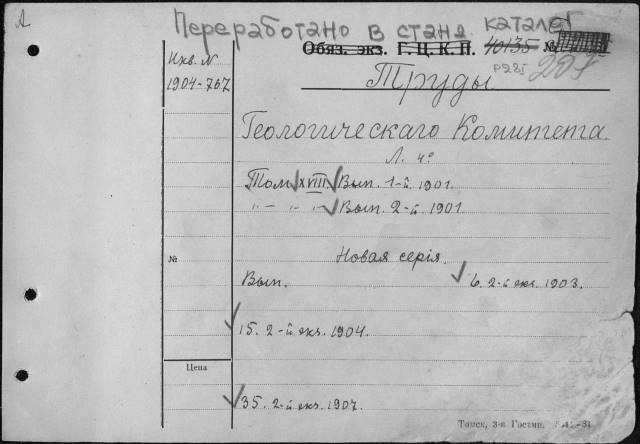 Переработано в станд. каталог
Обяз. экз. Г.Ц.К.П. 40135 №
Инв. N
1904-767
Труды
Геологическаго Комитета.
Л. 4°
Том XVIII. Вып. 1-й. 1901.
"- - "- Вып. 2-й. 1901.
Новая серія.
№
Вып. 6. 2-й экз. 1903.
15. 2-й экз. 1904.
Цена
35. 2-й экз. 1907.
Томск, 3-я Гостип.